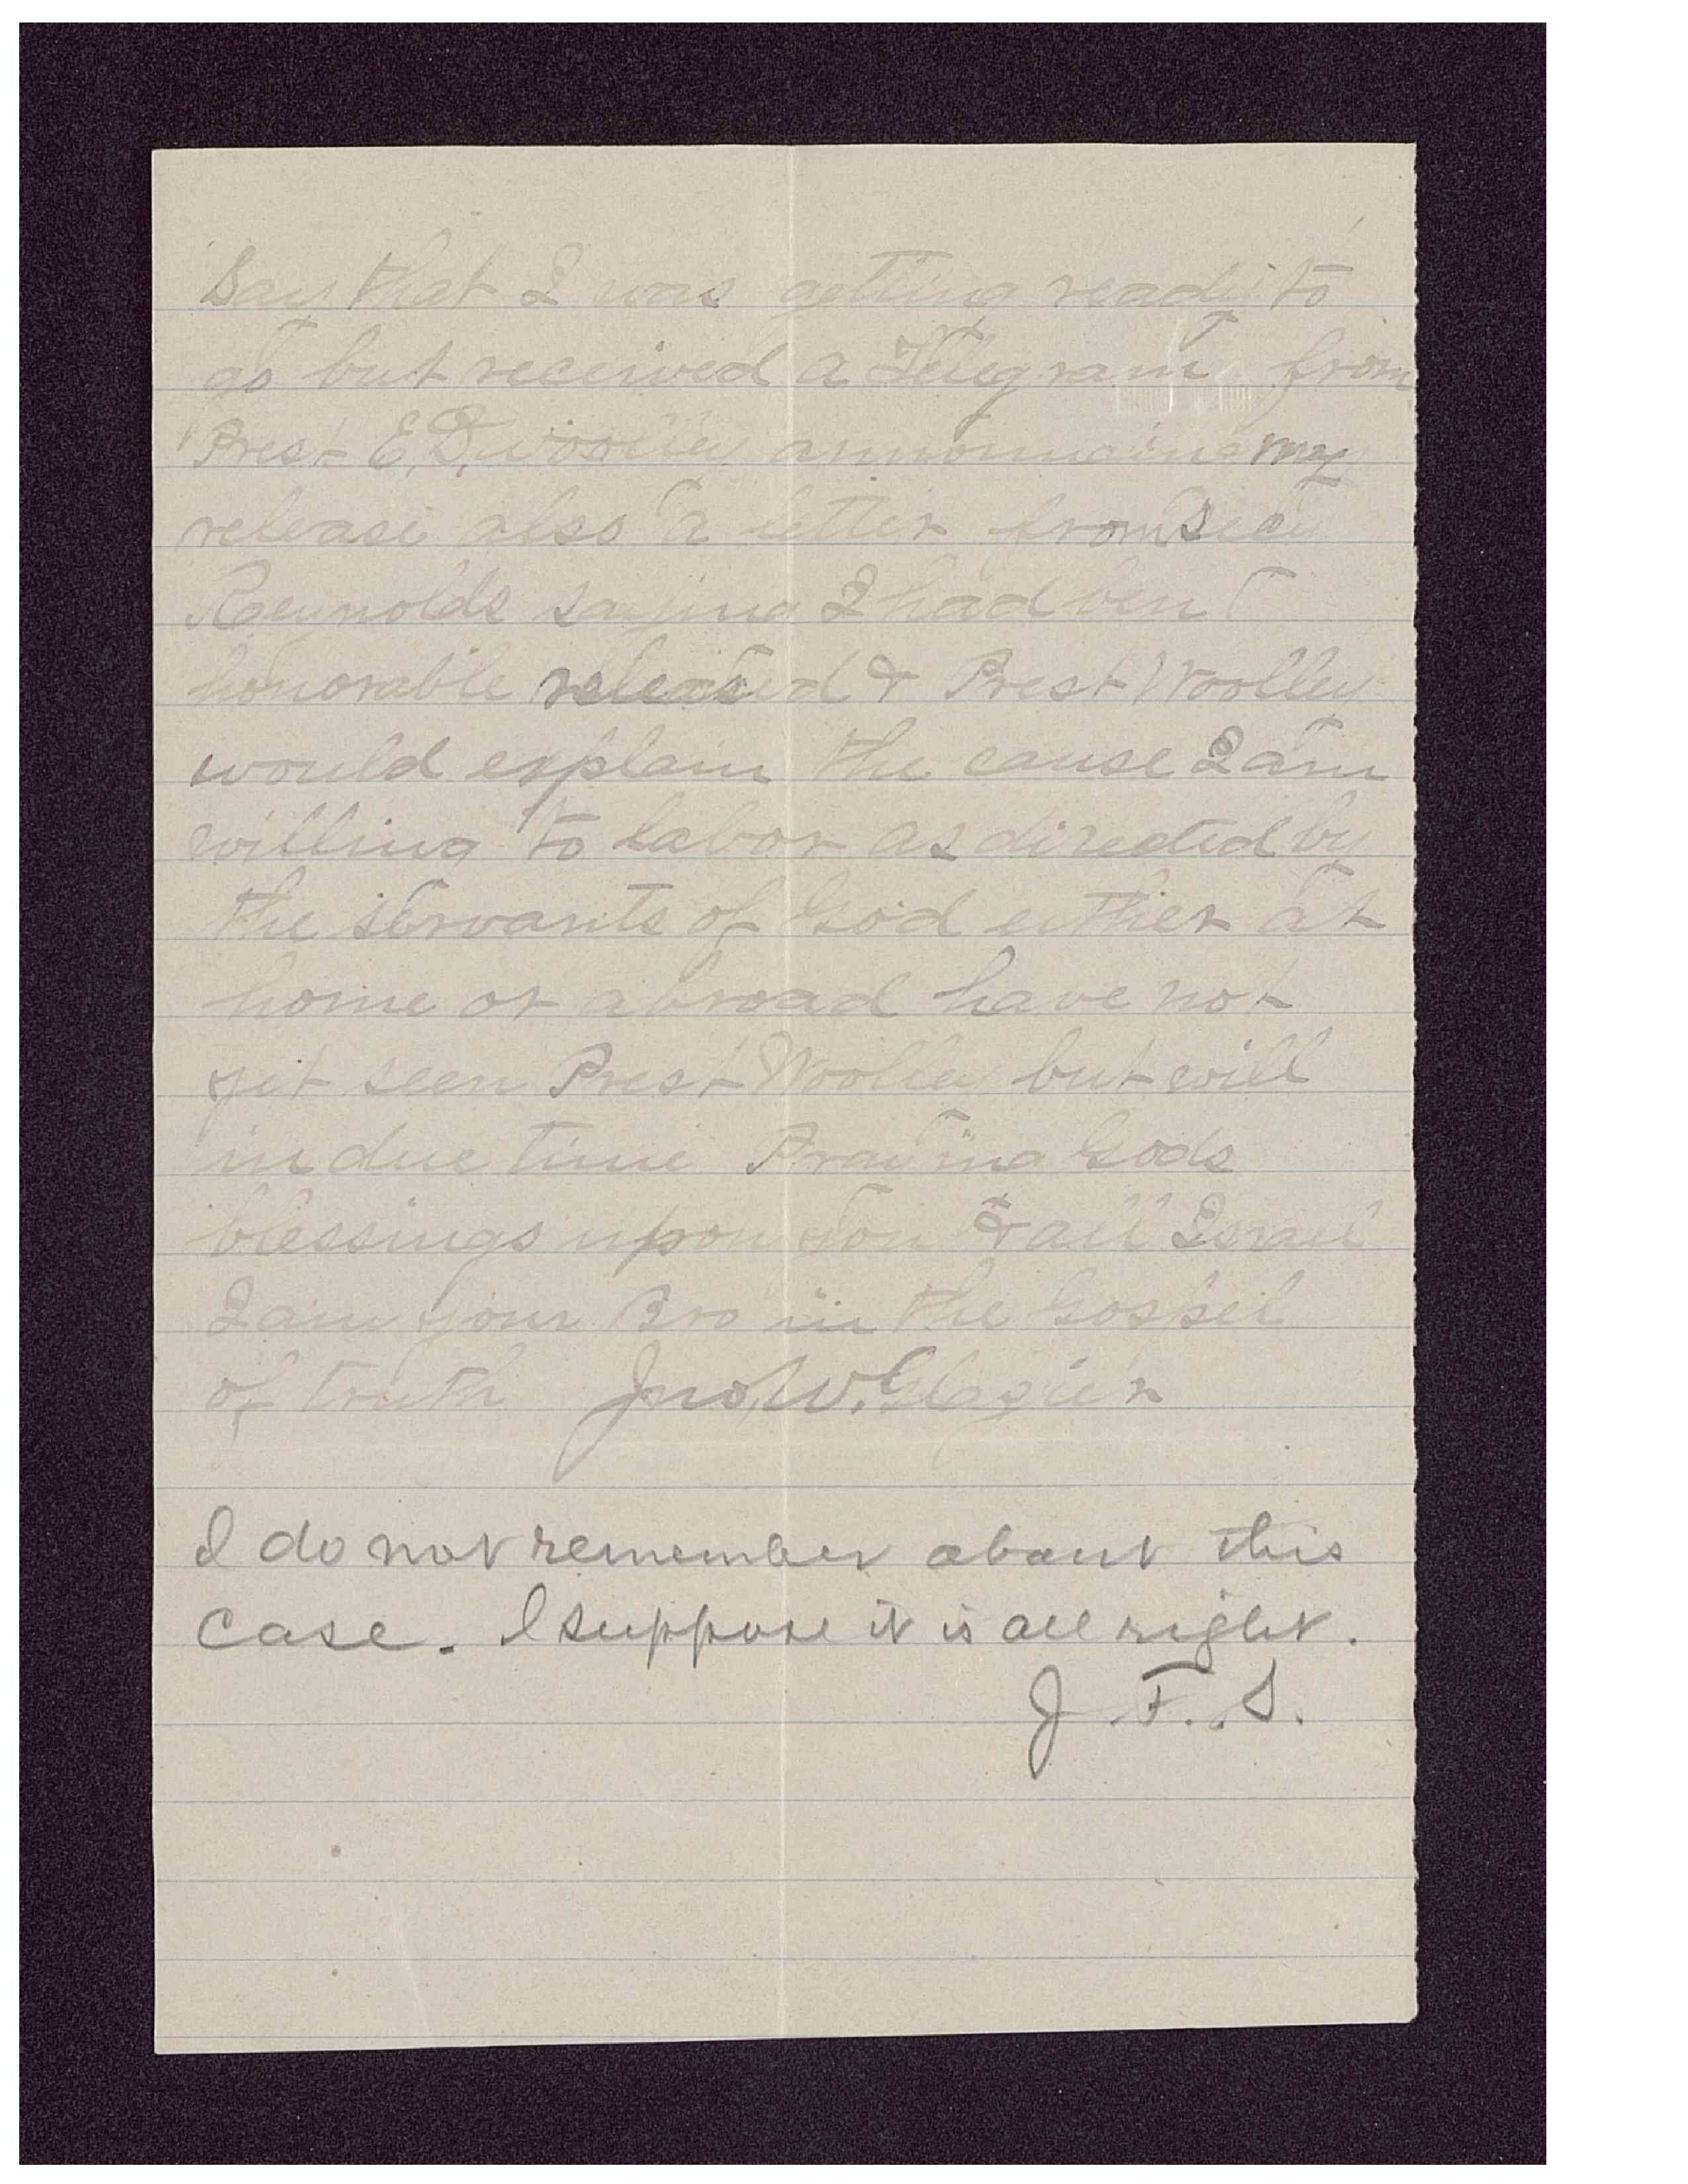 Say that I was getting ready to
go but received a Telegram from
Prest E.D. Woolley announcing my
release also a letter from Secy
Reynolds saying I had ben
honorable released & Prest Woolley
would explain the cause I am
willing to labor as directed by
the servants of God either at
home or abroad have not
yit seen Prest Woolley but will
in due time Praying Gods
blessings upon you & all Israel
I am your Bro in the Gospel
of truth Jno, W. Glazier
I do not remember about this
case. I suppose it is all right.
J. F. S.